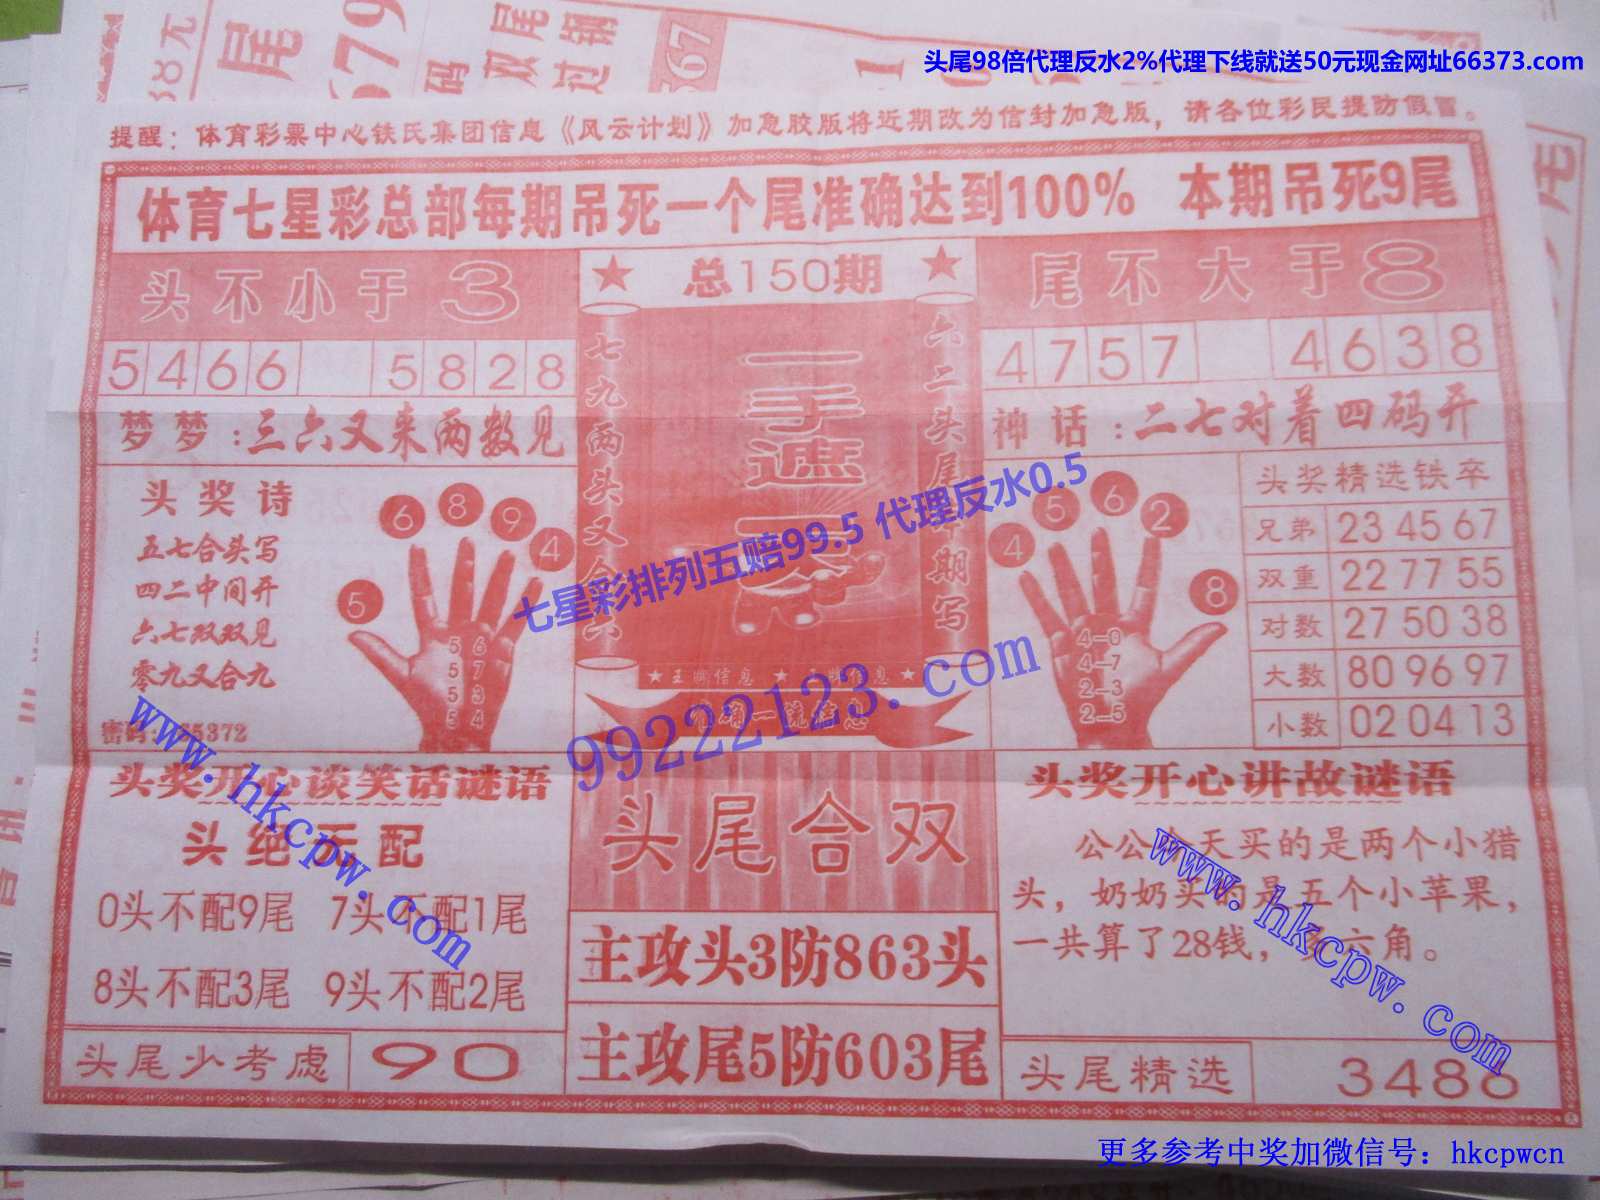 头尾98倍代理反水2%代理下线就送50元现金网址66373.com
尾
679
码
双尾
过
567
提醒：体育彩票中心铁氏集团信息《风云计划》加急胶版将近期改为信封加急版，请各位彩民提防假冒。
体育七星彩总部每期吊死一个尾准确达到100% 本期吊死9尾
头不小于3
★ 总150期 ★
尾不大于8
5466 5828
4757 4638
梦梦：三六又来两数见
神话：二七对着四码开
七九两头又合六
一手遮天
六二头尾本期写
头奖诗
五七合头写
四二中间开
六七双双见
零九又合九
5 6 8 9 4
5 6
5 7
5 3
5 4
4 5 6 2 8
4-0
4-7
2-3
2-5
头奖精选铁卒
兄弟 23 45 67
双重 22 77 55
对数 27 50 38
大数 80 96 97
小数 02 04 13
七星彩排列五赔99.5 代理反水0.5
★王牌信息 ★王牌信息★
99222123.com
头奖开心谈笑话谜语
头绝不配
0头不配9尾 7头不配1尾
8头不配3尾 9头不配2尾
头尾少考虑 90
头尾合双
主攻头3防863头
主攻尾5防603尾
头奖开心讲故谜语
公公今天买的是两个小猎
头，奶奶买的是五个小苹果，
一共算了28钱，六角。
头尾精选 3486
www.hkcpw.com
www.hkcpw.com
更多参考中奖加微信号：hkcpwcn